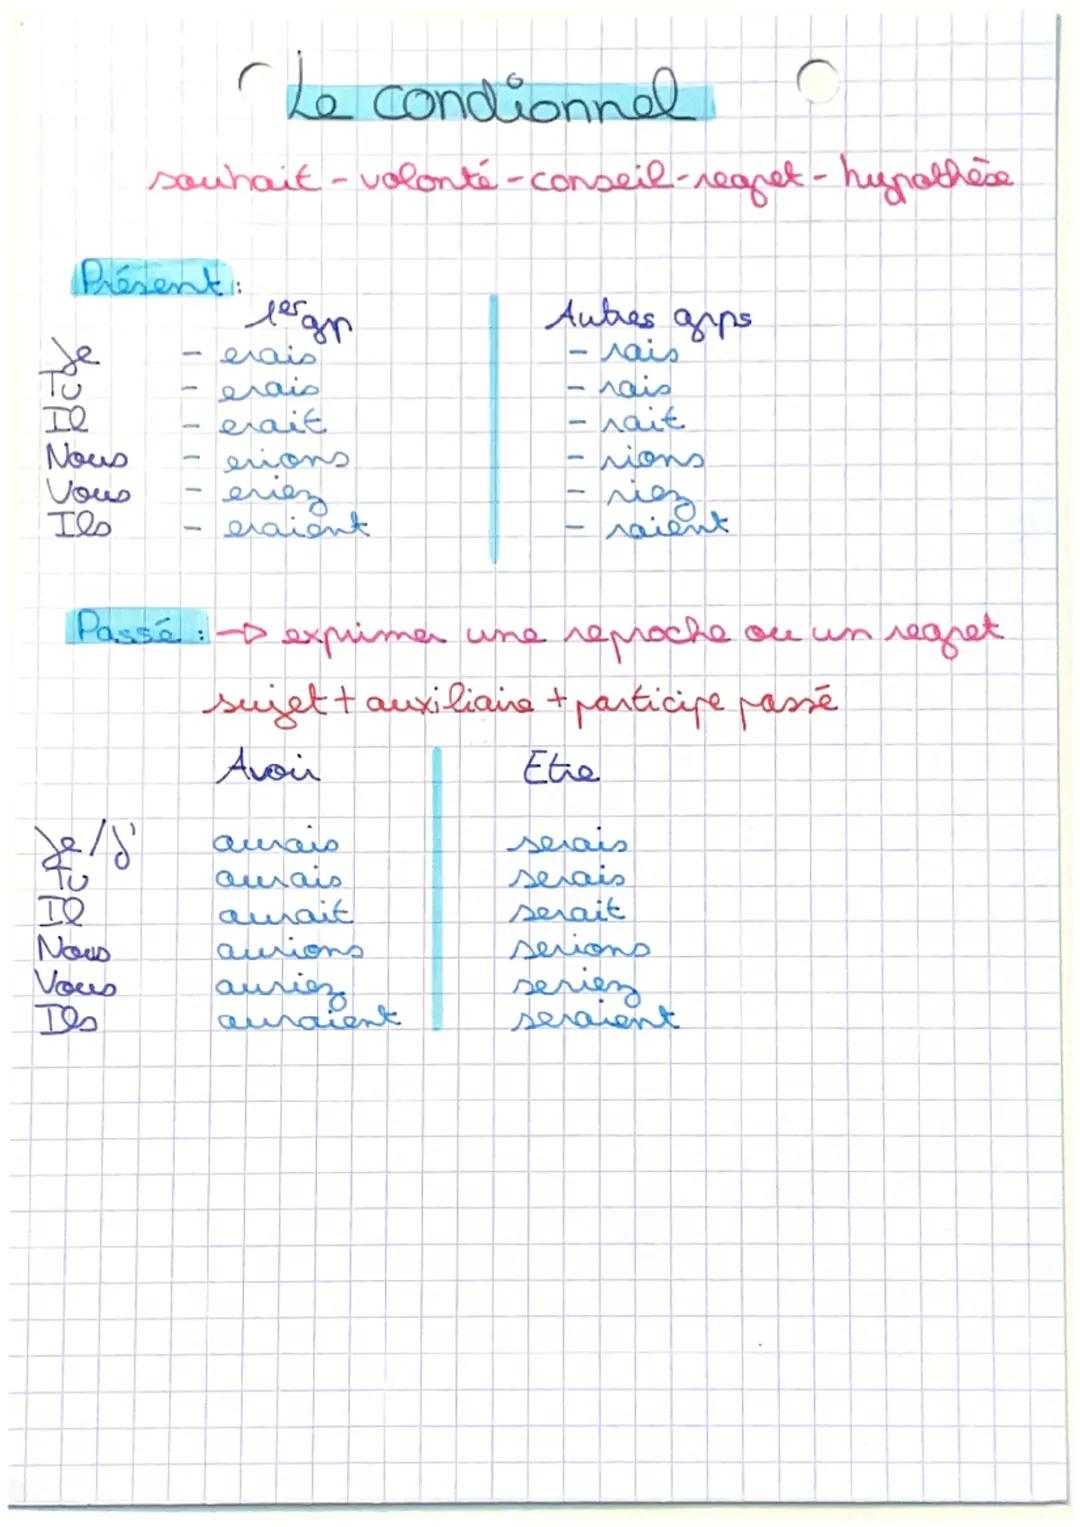 Le condionnel
souhait - volonté - conseil - regret - hypothèse
Présent :
1er gp Autres grps
Je - erais - rais
Tu - erais - rais
Il - erait - rait
Nous - erions - rions
Vous - eriez - riez
Ils - eraient - raient
Passé : → exprimer une reproche ou un regret
sujet + auxiliaire + participe passé
Avoir Etre
Je/J' aurais serais
Tu aurais serais
Il aurait serait
Nous aurions serions
Vous auriez seriez
Ils auraient seraient